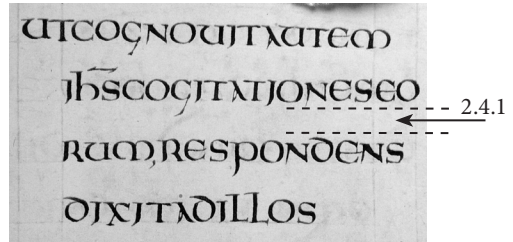 UTCOGNOUITAUTEM
IħSCOGITATIONESEO
2.4.1
RUM,RESPONDENS
DIXITADILLOS